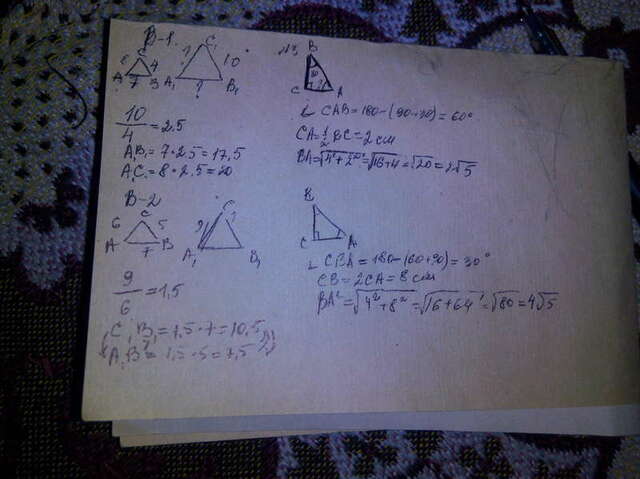 В-1.
C
C₁
8
4
?
10
A
7
B
A₁
?
B₁
10/4 = 2,5
A₁B₁ = 7 * 2,5 = 17,5
A₁C₁ = 8 * 2,5 = 20
В-2
6
C
5
A
7
B
9
C₁
?
A₁
B₁
9/6 = 1,5
C₁B₁ = 1,5 * 7 = 10,5
A₁B₁ = 1,5 * 5 = 7,5
B
30
C
A
∠ CAB = 180 - (90+30) = 60°
CA = 1/2 BC = 2 см
BA = √4²+2² = √16+4 = √20 = 2√5
B
C
A
∠ CBA = 180 - (60+90) = 30°
CB = 2CA = 8 см
BA² = √4²+8² = √16+64 = √80 = 4√5